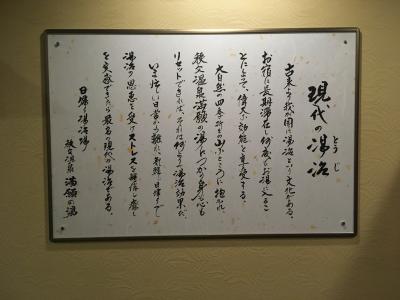 現代の湯治
とうじ
古来より我が国に湯治という文化がある。
お宿に長期滞在し何度もお湯に入るこ
とによって、偉大な効能を享受する。
大自然の四季折々の山ふところに抱かれ
秩父温泉満願の湯につかり身も心も
リセットできれば、それは何よりの湯治効果だ。
いま忙しい日常から離れ、気軽に日帰りで
湯治の恩恵を受けストレスを解消し癒し
を実感できたら最高の現代の湯治である。
日帰り湯治場
秩父温泉 満願の湯